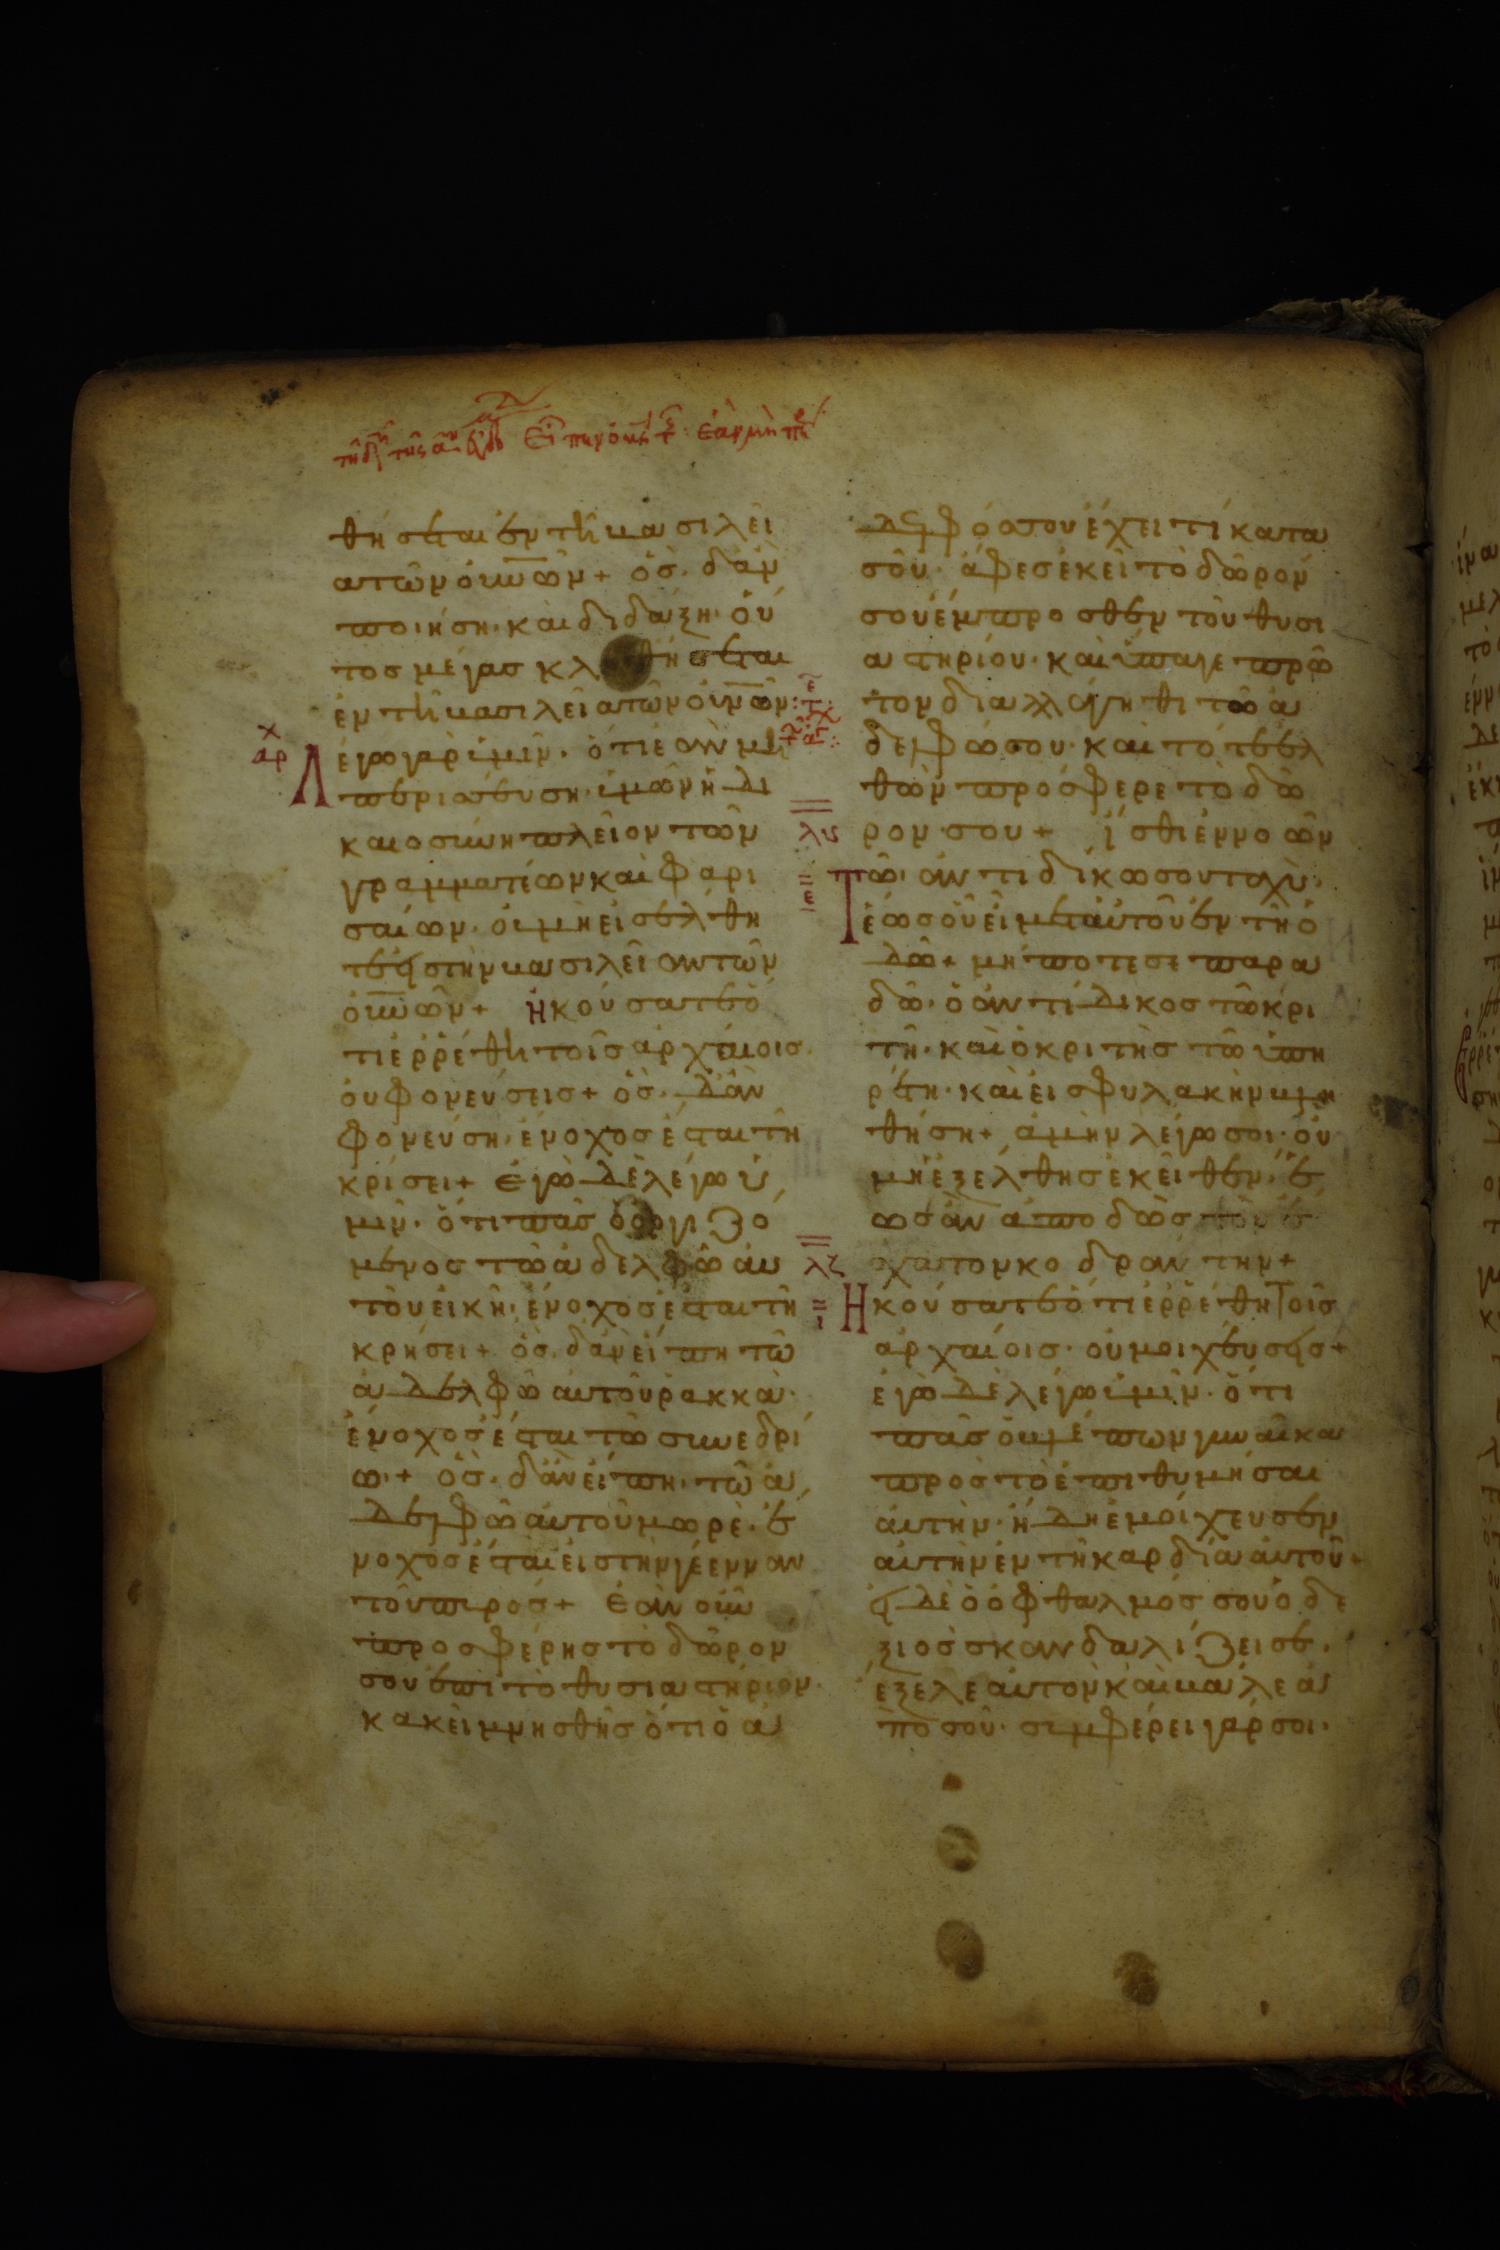 θήσεται ἐν τῆ βασιλεί
α τῶν οὐ̅νῶν + ὃς δ' ἀν
ποιήση· καὶ διδάξη· οὗ
τος μέγας κλ θήσεται
ἐν τῆ βασιλεία τῶν οὐ̅νῶν:
αρχ
Λέγω γὰρ ὑμῖν· ὅτι ἐὰν μὴ
περισσεύση ὑμῶν ἡ δι
καιοσύνη πλεῖον τῶν
γραμματέων καὶ φαρι
σαίων· οὐ μὴ εἰσέλθη
τε εἰς τὴν βασιλείαν τῶν
οὐ̅νῶν + ἠκούσατε ὅ
τι ἐρρέθη τοῖς ἀρχαίοις
οὐ φονεύσεις + ὃς δ' ἂν
φονεύση· ἔνοχος ἔσται τῆ
κρίσει + ἐγὼ δὲ λέγω ὑ
μῖν· ὅτι πᾶς ὁ ὀργιζό
μενος τῶ ἀδελφῶ αὐ
τοῦ εἰκῆ· ἔνοχος ἔσται τῆ
κρήσει + ὃς δ' ἀν εἴπη τῶ
ἀδελφῶ αὐτοῦ ρακκὰ·
ἔνοχος ἔσται τῶ συνεδρί
ω· + ὃς δ' ἂν εἴπη· τῶ ἀ
δελφῶ αὐτοῦ μωρὲ· ἔ
νοχος ἔσται εἰς τὴν γέενναν
τοῦ πυρός + ἐὰν οὖν
προσφέρης τὸ δῶρον
σου ἐπὶ τὸ θυσιαστήριον·
κακεῖ μνησθῆς ὅτι ὁ ἀ
λς
ε
λζ
ι
δελφός σου ἔχει τί κατα
σοῦ· ἄφες ἐκεῖ τὸ δῶρόν
σου ἔμπροσθεν τοῦ θυσι
αστηρίου· καὶ ὕπαγε πρῶ
τον διαλλάγηθι τῶ ἀ
δελφῶ σου· καὶ τότε ἐλ
θὼν πρόσφερε τὸ δῶ
ρον σου + ἴσθι ἐννοῶν
Τῶ ἀντιδίκω σου ταχὺ·
ἕως οὗ εἶ μετ' αὐτοῦ ἐν τῆ ὁ
δῶ + μήποτε σε παρα
δῶ· ὁ ἀντίδικος τῶ κρι
τῆ· καὶ ὁ κριτὴς τῶ ὑπη
ρέτη· καὶ εἰς φυλακὴν βλη
θήση + ἀμὴν λέγω σοι· οὐ
μὴ ἐξέλθης ἐκεῖθεν· ἕ
ως ἂν ἀποδῶς τὸν ἔ
σχατον κοδράντην +
Ἠκούσατε ὅτι ἐρρέθη τοῖς
ἀρχαίοις· οὐ μοιχεύσεις +
ἐγὼ δὲ λέγω ὑμῖν· ὅτι
πᾶς ὁ βλέπων γυναῖκα
πρὸς τὸ ἐπιθυμῆσαι
αὐτὴν· ἤδη ἐμοίχευσεν
αὐτὴν ἐν τῆ καρδία αὐτοῦ +
εἰ δὲ ὁ ὀφθαλμός σου ὁ δε
ξιὸς σκανδαλίζει σε·
ἔξελε αὐτὸν καὶ βάλε ἀ
πὸ σοῦ· συμφέρει γάρ σοι·